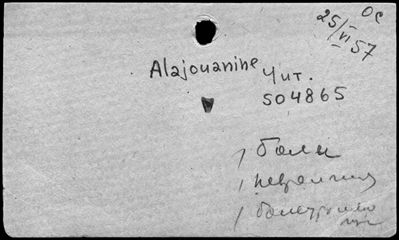 Ос
25/VI 57
Alajouanine Чит.
504865
боли
невралгия